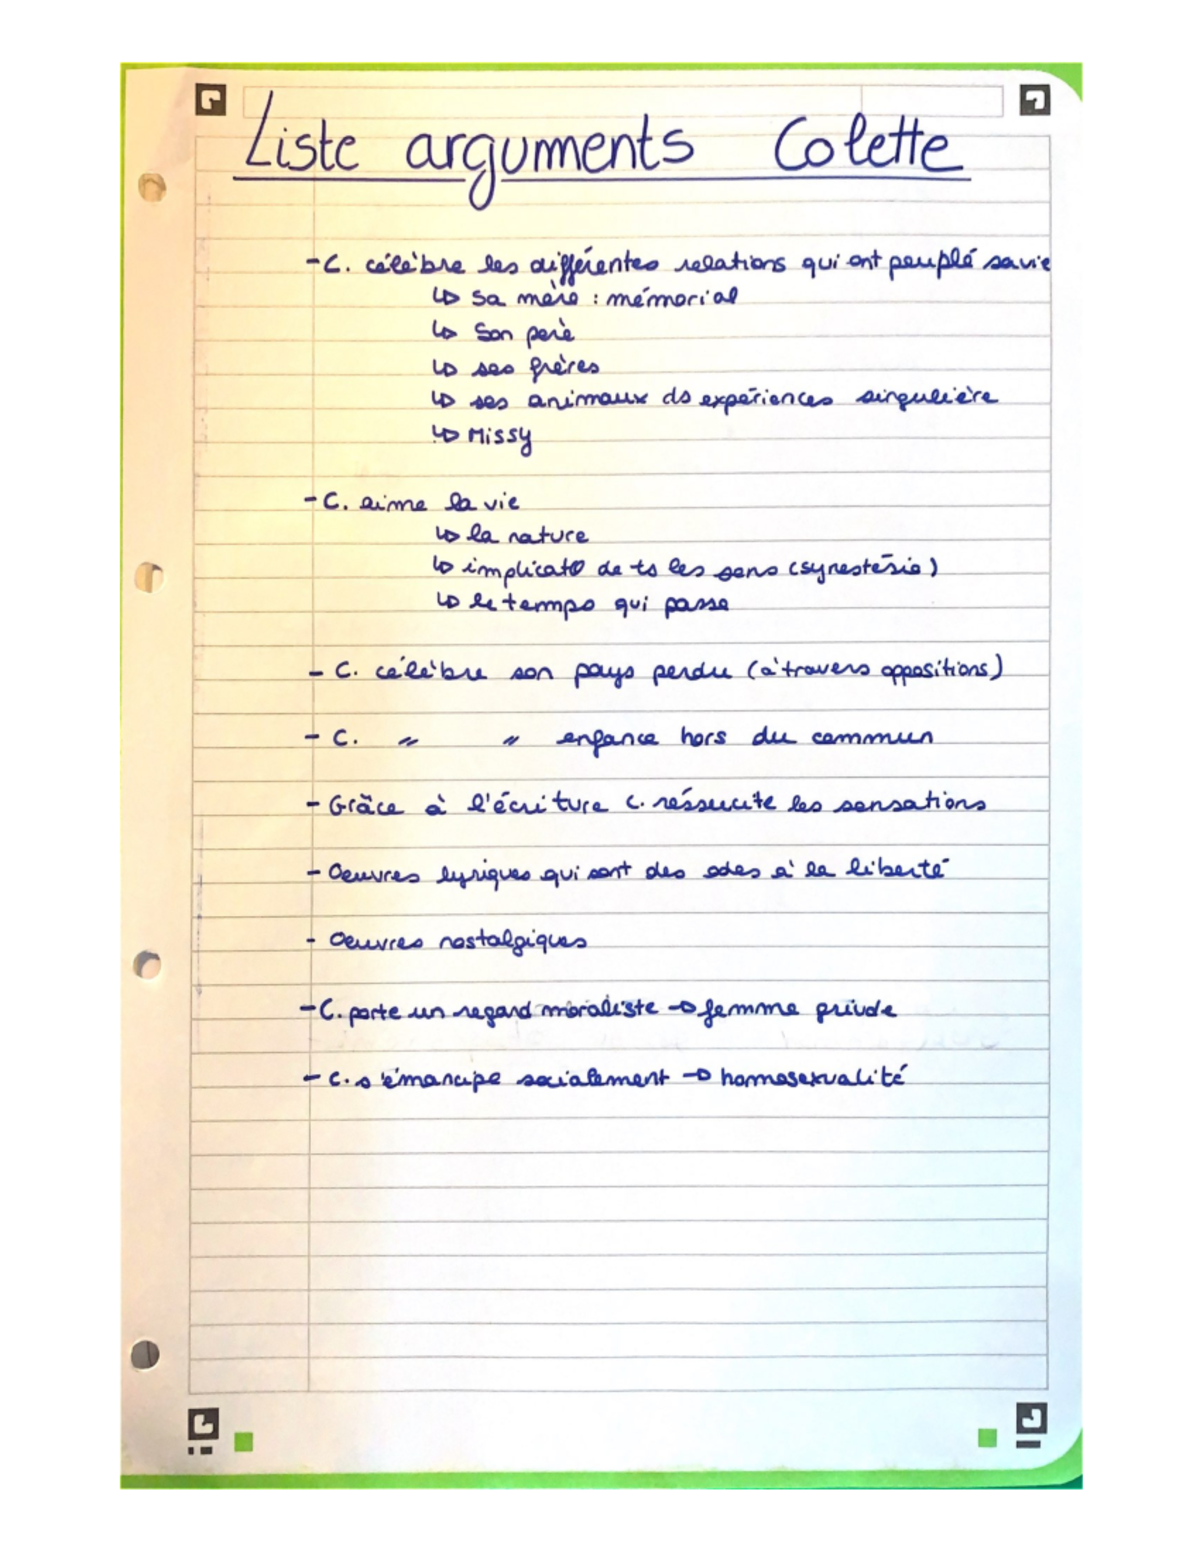 Liste arguments Colette
- C. célèbre les différentes relations qui ont peuplé sa vie
↳ sa mère : mémorial
↳ Son père
↳ ses frères
↳ ses animaux ds expériences singulière
↳ Missy
- C. aime la vie
↳ la nature
↳ implicat° de ts les sens (synestésie)
↳ le temps qui passe
- C. célèbre son pays perdu (à travers oppositions)
- C. " " enfance hors du commun
- Grâce à l'écriture C. réssucite les sensations
- Oeuvres lyriques qui sont des odes à la liberté
- Oeuvres nostalgiques
- C. porte un regard moraliste → femme prude
- C. s'émancipe socialement → homosexualité